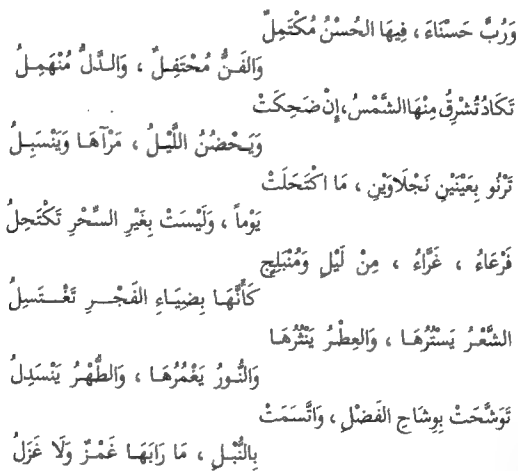 وَرُبَّ حَسْنَاءَ ، فِيهَا الحُسْنُ مُكْتَمِلٌ
وَالفَنُّ مُحْتَفِلٌ ، وَالدَّلُّ مُنْهَمِلُ
تَكَادُ تُشْرِقُ مِنْهَا الشَّمْسُ، إِنْ ضَحِكَتْ
وَيَحْضُنُ اللَّيْلُ ، مَرْآهَا وَيَنْسَبِلُ
تَرْنُو بِعَيْنَيْنِ نَجْلَاوَيْنِ ، مَا اكْتَحَلَتْ
يَوْماً ، وَلَيْسَتْ بِغَيْرِ السِّحْرِ تَكْتَحِلُ
فَرْعَاءُ ، غَرَّاءُ ، مِنْ لَيْلٍ وَمُنْبَلِجٍ
كَأَنَّهَا بِضِيَاءِ الفَجْرِ تَغْتَسِلُ
الشَّعْرُ يَسْتُرُهَا ، وَالعِطْرُ يَنْثُرُهَا
وَالنُّورُ يَغْمُرُهَا ، وَالطُّهْرُ يَنْسَدِلُ
تَوَشَّحَتْ بِوِشَاحِ الفَضْلِ ، وَاتَّسَمَتْ
بِالنُّبْلِ ، مَا رَابَهَا غَمْزٌ وَلَا غَزَلُ